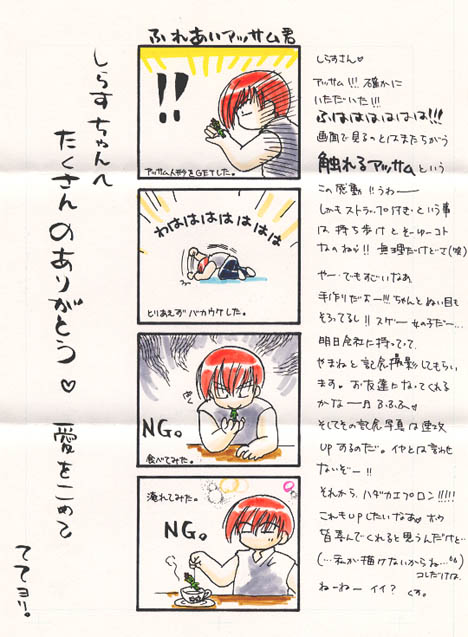 ふれあいアッサム君
しらすちゃんへ
たくさんのありがとう♡
愛をこめて
ててヨリ。
!!
アッサム人形をGETした。
わはははははははは
とりあえずバカウケした。
NG。
食べてみた。
淹れてみた。
NG。
しらすさん♡
アッサム!!! 確かに
いただいた!!!
ふはははははは!!!
画面で見るのとはまたちがう
触れるアッサムという
この感動!!うわー
しかもストラップ付きという事
は 持ち歩けとそーゆーコト
なのねッ!! 無理だけどさ(笑)
やー でもすごいなあ
手作りだよー!!!ちゃんとぬい目も
そろってるし!! スゲー 女の子だー…
明日会社に持ってって
やまねと記念撮影してもらい
ます。お友達になってくれる
かなー
そしてその記念写真は速攻
UPするのだ。イヤとは言わせ
ないぞー!!
それから、ハダカエプロン!!!!!
これもUPしたいなあ♡
皆喜んでくれると思うんだけど…
(…私が描けないからね…
コレだけは。
ねーねー イイ?